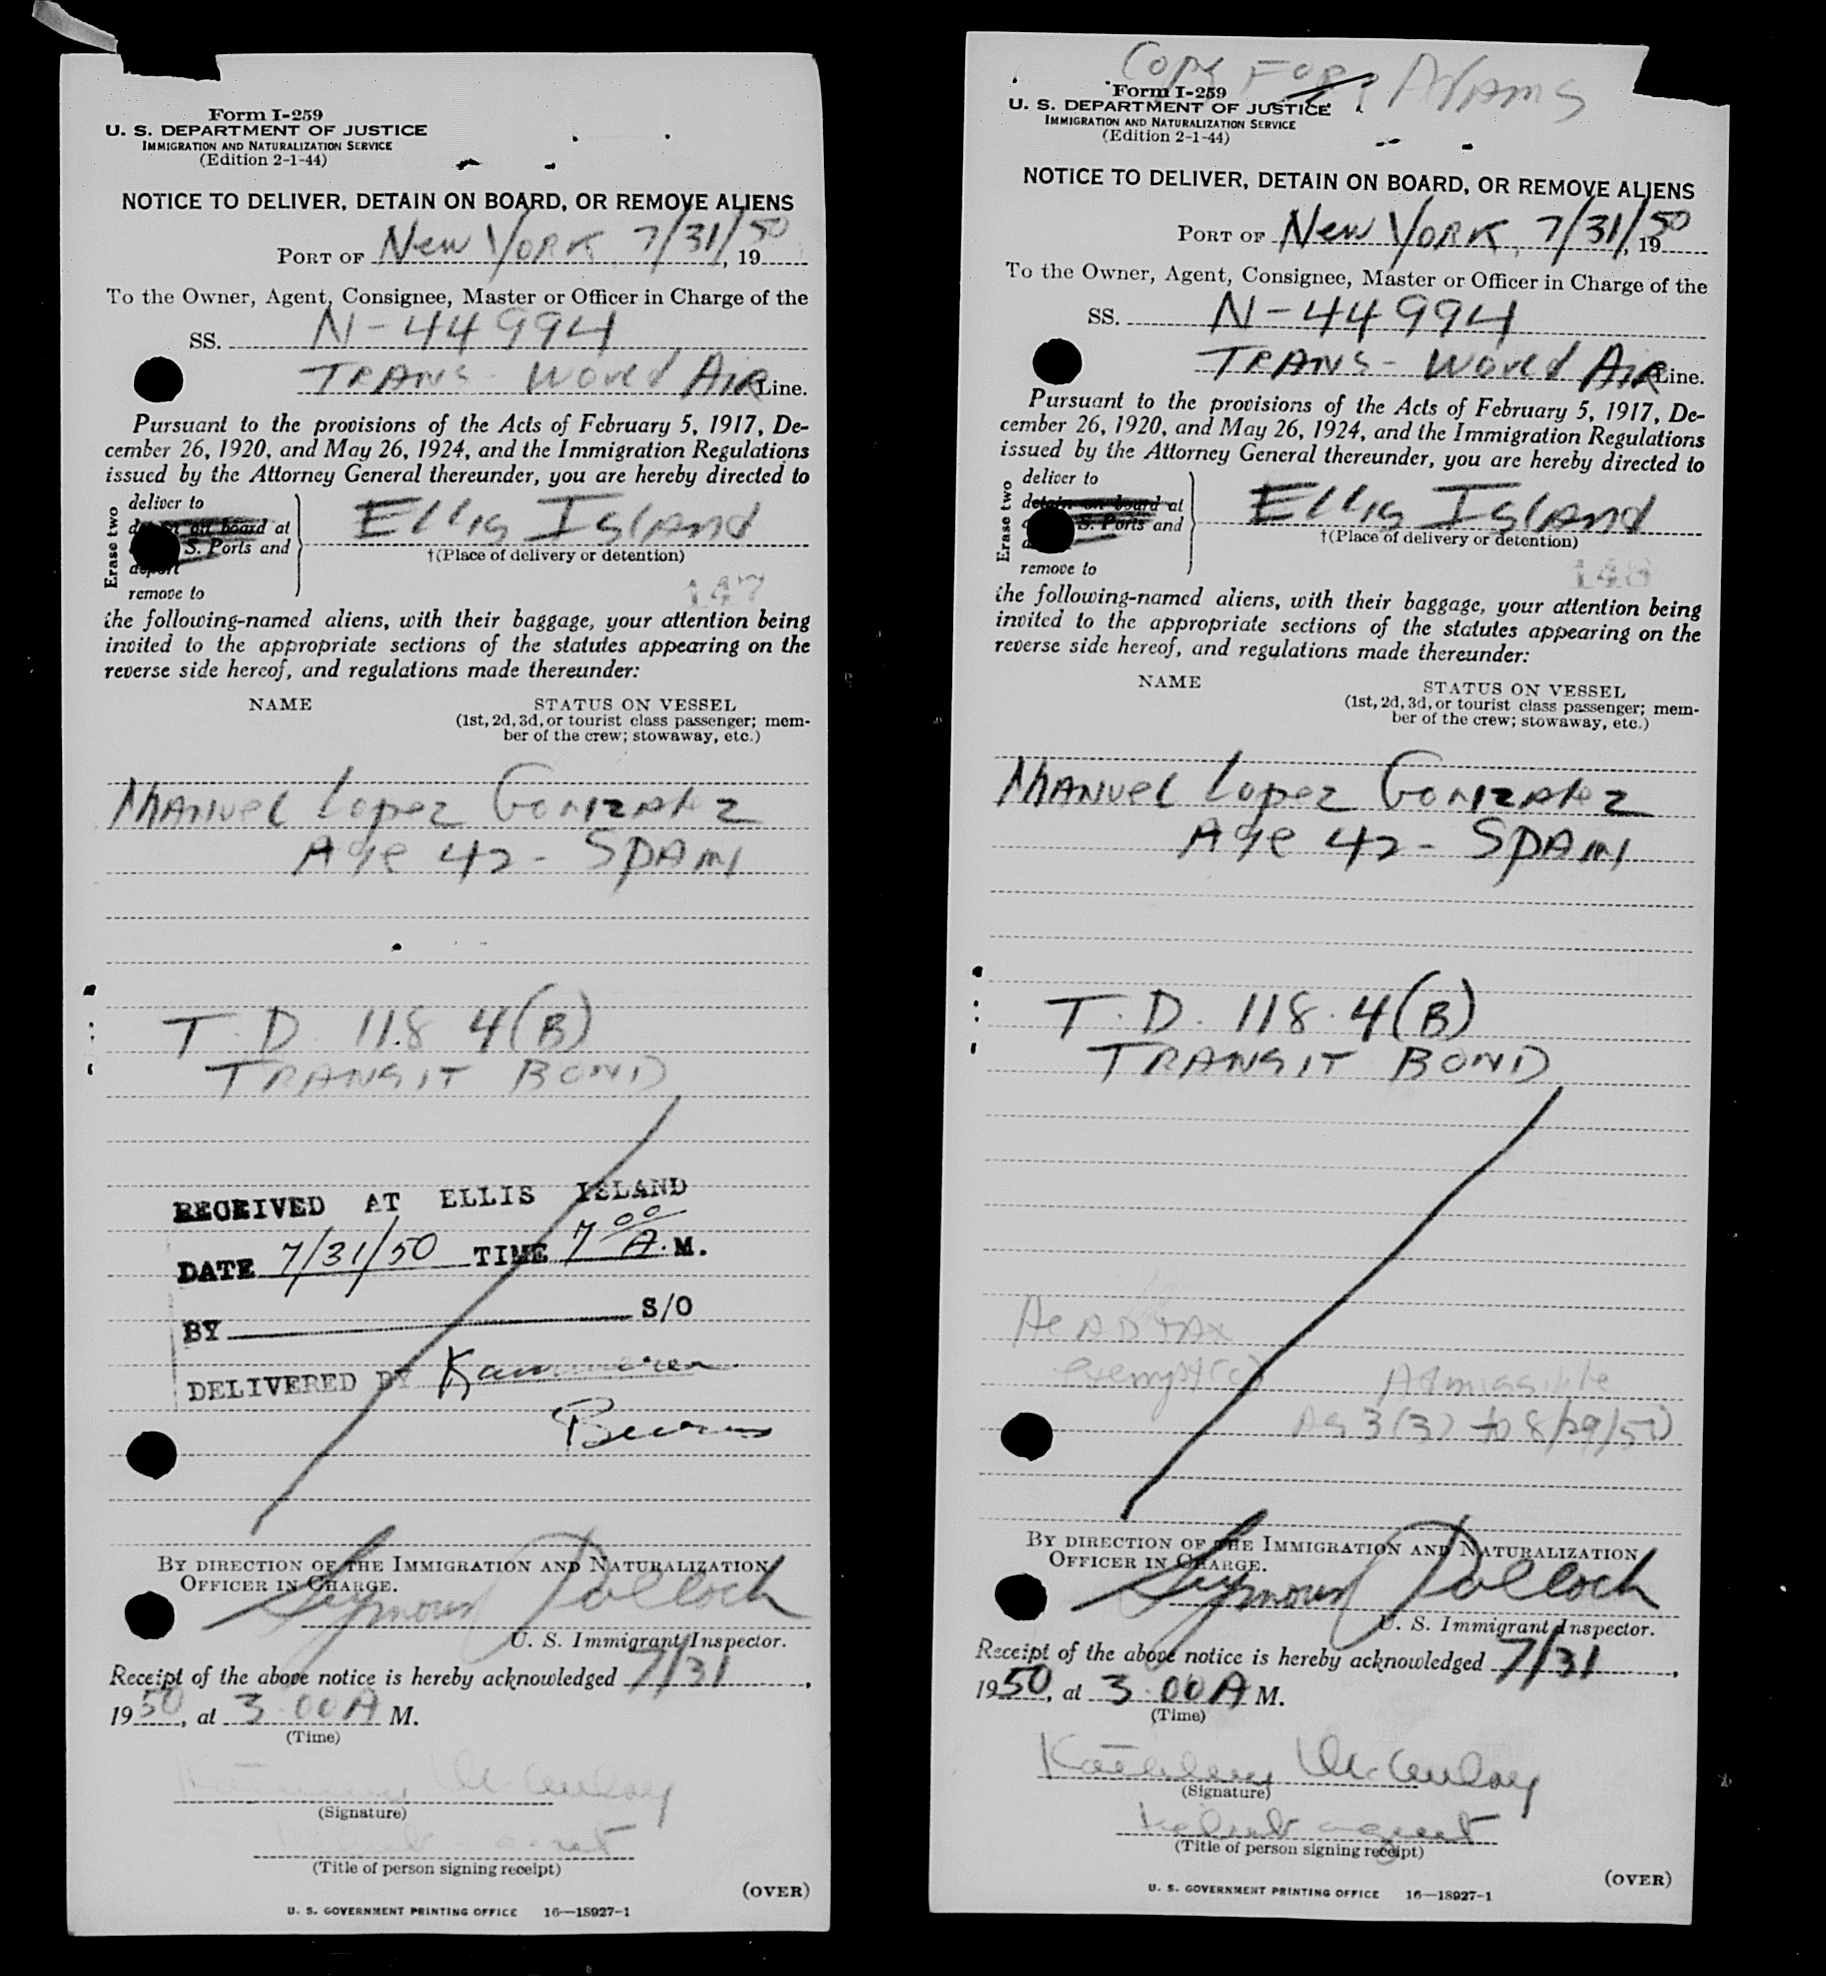 Form I-259
U. S. DEPARTMENT OF JUSTICE
IMMIGRATION AND NATURALIZATION SERVICE
(Edition 2-1-44)
NOTICE TO DELIVER, DETAIN ON BOARD, OR REMOVE ALIENS
PORT OF New York 7/31/50, 19
To the Owner, Agent, Consignee, Master or Officer in Charge of the
SS. N-44994
TRANS-World AIR Line.
Pursuant to the provisions of the Acts of February 5, 1917, De-
cember 26, 1920, and May 26, 1924, and the Immigration Regulations
issued by the Attorney General thereunder, you are hereby directed to
Erase two
deliver to
on board at
S. Ports and
deport
remove to
Ellis Island
†(Place of delivery or detention)
147
the following-named aliens, with their baggage, your attention being
invited to the appropriate sections of the statutes appearing on the
reverse side hereof, and regulations made thereunder:
NAME
STATUS ON VESSEL
(1st, 2d, 3d, or tourist class passenger; mem-
ber of the crew; stowaway, etc.)
Manuel Lopez Gonzalez
Age 42 - Spain
T.D. 118.4(B)
TRANSIT BOND
RECEIVED AT ELLIS ISLAND
DATE 7/31/50 TIME 7 00 A.M.
BY S/O
DELIVERED BY
BY DIRECTION OF THE IMMIGRATION AND NATURALIZATION
OFFICER IN CHARGE.
Seymour Pollock
U. S. Immigrant Inspector.
Receipt of the above notice is hereby acknowledged 7/31,
1950, at 3:00 A M.
(Time)
(Signature)
agent
(Title of person signing receipt)
(OVER)
U. S. GOVERNMENT PRINTING OFFICE 16—18927-1
Copy For Adams
Form I-259
U. S. DEPARTMENT OF JUSTICE
IMMIGRATION AND NATURALIZATION SERVICE
(Edition 2-1-44)
NOTICE TO DELIVER, DETAIN ON BOARD, OR REMOVE ALIENS
PORT OF New York, 7/31/50, 19
To the Owner, Agent, Consignee, Master or Officer in Charge of the
SS. N-44994
TRANS-World AIR Line.
Pursuant to the provisions of the Acts of February 5, 1917, De-
cember 26, 1920, and May 26, 1924, and the Immigration Regulations
issued by the Attorney General thereunder, you are hereby directed to
Erase two
deliver to
detain on board at
S. Ports and
remove to
Ellis Island
†(Place of delivery or detention)
148
the following-named aliens, with their baggage, your attention being
invited to the appropriate sections of the statutes appearing on the
reverse side hereof, and regulations made thereunder:
NAME
STATUS ON VESSEL
(1st, 2d, 3d, or tourist class passenger; mem-
ber of the crew; stowaway, etc.)
Manuel Lopez Gonzalez
Age 42 - Spain
T.D. 118.4(B)
TRANSIT BOND
Head tax
exempt(c)
Admissible
as 3(3) to 8/29/50
BY DIRECTION OF THE IMMIGRATION AND NATURALIZATION
OFFICER IN CHARGE.
Seymour Pollock
U. S. Immigrant Inspector.
Receipt of the above notice is hereby acknowledged 7/31,
1950, at 3:00 A M.
(Time)
Kathleen McCauley
(Signature)
agent
(Title of person signing receipt)
(OVER)
U. S. GOVERNMENT PRINTING OFFICE 16—18927-1